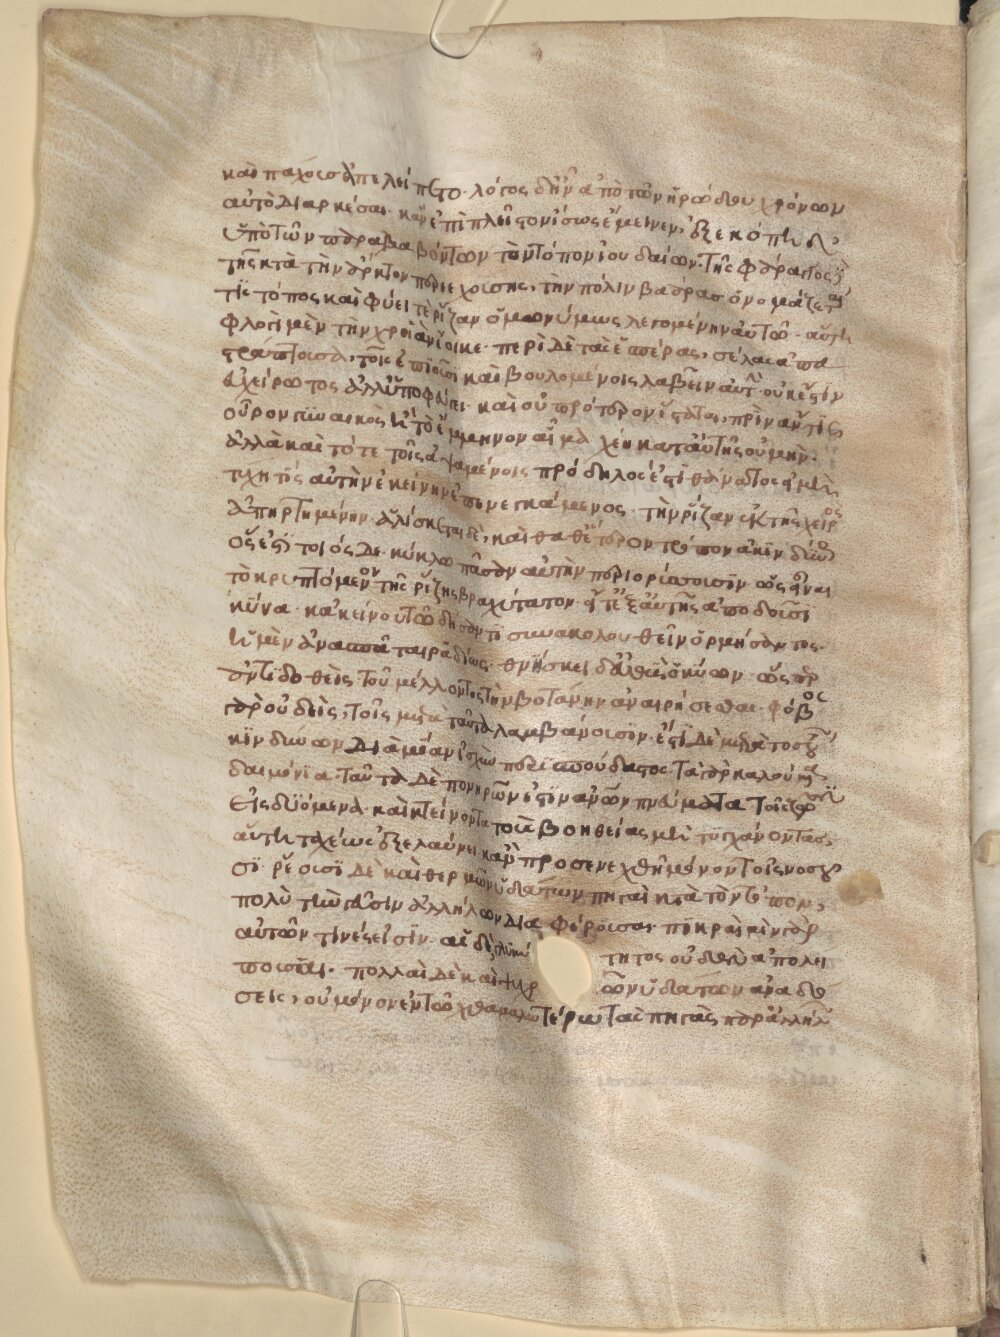 καὶ πάχους ἀπελείπετο· λόγος δ' ἦν ἀπὸ τῶν ἡρώδου χρόνων
αὐτὸ διαρκέσαι· κἂν ἐπὶ πλεῖστον ἴσως ἔμεινεν, ἐξεκόπη δ'
ὑπὸ τῶν παραλαβόντων τὸν τόπον ἰουδαίων· τῆς φάραγγος δὲ
τῆς κατὰ τὴν ἄρκτον περιεχούσης, τὴν πόλιν βαάρας ὀνομάζεται
τίς τόπος καὶ φύει τὲ ῥίζαν ὁμωνύμως λεγομένην αὐτῶ· αὕτη
φλογὶ μὲν τὴν χροιὰν ἔοικε· περὶ δὲ τὰς ἑσπέρας, σέλας ἀπα
στράπτουσα, τοῖς ἐπιοῦσι καὶ βουλομένοις λαβεῖν αὐτὴν οὐκ ἔστιν
εὐχείρωτος ἀλλ' ὑποφεύγει· καὶ οὐ πρότερον ἵσταται, πρὶν ἄν τις
οὖρον γυναικὸς ἢ τὸ ἔμμηνον αἷμα χέη κατ' αὐτῆς οὐ μὴν
ἀλλὰ καὶ τότε τοῖς ἁψαμένοις πρόδηλός ἐστι θάνατος εἰ μὴ
τύχη τίς αὐτὴν ἐκείνην ἐπενεγκάμενος τὴν ῥίζαν ἐκ τῆς χειρὸς
ἀπηρτημένην· ἁλίσκεται δὲ, καὶ καθ' ἕτερον τρόπον ἀκινδύνως
ὅς ἐστι τοιόσδε· κύκλω πᾶσαν αὐτὴν περιορύσσουσιν ὡς εἶναι
τὸ κρυπτόμενον τῆς ῥίζης βραχύτατον· εἶτ' ἐξ αὐτῆς ἀποδοῦσι
κύνα· κἀκείνου τῶ δήσαντι συνακολουθεῖν ὁρμήσαντος·
ἡ μὲν ἀνασπᾶται ῥαδίως· θνήσκει δ' εὐθὺς ὁ κύων· ὥσπερ
ἀντιδοθεὶς τοῦ μέλλοντος τὴν βοτάνην ἀναιρήσεσθαι· φόβος
γὰρ οὐδεὶς, τοῖς μετὰ ταῦτα λαμβάνουσιν· ἔστι δὲ μετὰ τοσούτων
κινδύνων διὰ μίαν ἰσχὺν περισπούδαστος· τὰ γὰρ καλούμενα
δαιμόνια· ταῦτα δὲ πονηρῶν ἐστιν ἀνθρώπων πνεύματα τοῖς ζῶσιν
εἰσδυόμενα καὶ κτείνοντα τοὺς βοηθείας μὴ τυγχάνοντας
αὕτη ταχέως ἐξελαύνει κἂν προσενεχθῆ μόνον τοῖς νοσοῦ
σι· ῥέουσι δὲ καὶ θερμῶν ὑδάτων πηγαὶ κατὰ τὸν τόπον,
πολὺ τὴν γεῦσιν ἀλλήλων διαφέρουσαι· πικραὶ μὲν γὰρ
αὐτῶν τινές εἰσιν· αἱ δὲ γλυκύ τητος οὐδὲν ἀπολεί
πουσαι· πολλαὶ δὲ καὶ ψυχρ ῶν ὑδάτων ἀναδό
σεις, οὐ μόνον ἐν τῶ χθαμαλωτέρω τὰς πηγὰς παραλλήλ